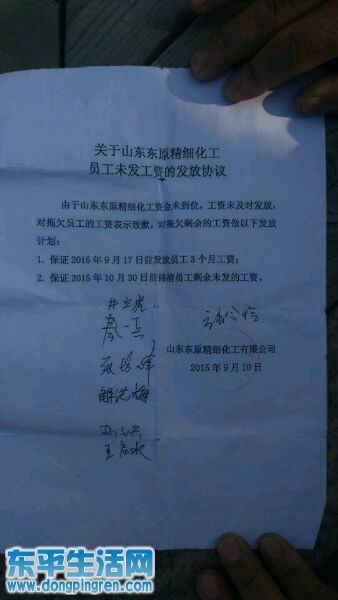 关于山东东原精细化工
员工未发工资的发放协议
由于山东东原精细化工资金未到位，工资未及时发放，
对拖欠员工的工资表示致歉，对拖欠剩余的工资做以下发放
计划：
1. 保证2015年9月17日前发放员工3个月工资；
2. 保证2015年10月30日前结清员工剩余未发的工资。
山东东原精细化工有限公司
2015年9月10日
东平生活网
www.dongpingren.com